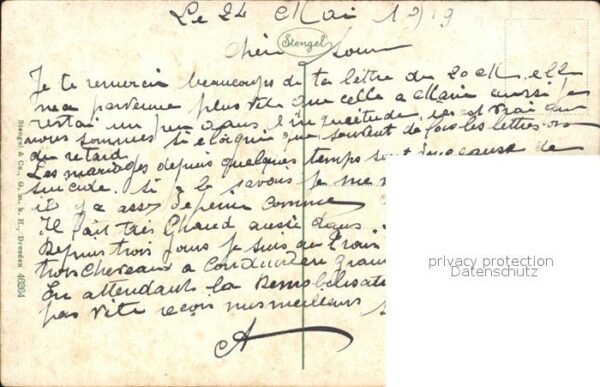 Le 24 Mai 1919
Stengel
Chère Soeur
Je te remercie beaucoups de ta lettre du 20 et elle
mea parvenue plus vite que celle a Marie aussi je
restai un peu dans l'inquietude, il est vrai que
nous sommes si eloigné que souvent de fois les lettres on
du retard.
Les mariages depuis quelques temps sont cause de
suicide. Si je le savois je me
il y a assez de peine comme
Il fait très Chaud aussi dans
Depuis trois jours je suis au
trois chevaux a conduire en
En attendant la Demobilisati
pas vite reçois mes meilleurs
A
Stengel & Co., G. m. b. H., Dresden 46264
privacy protection
Datenschutz